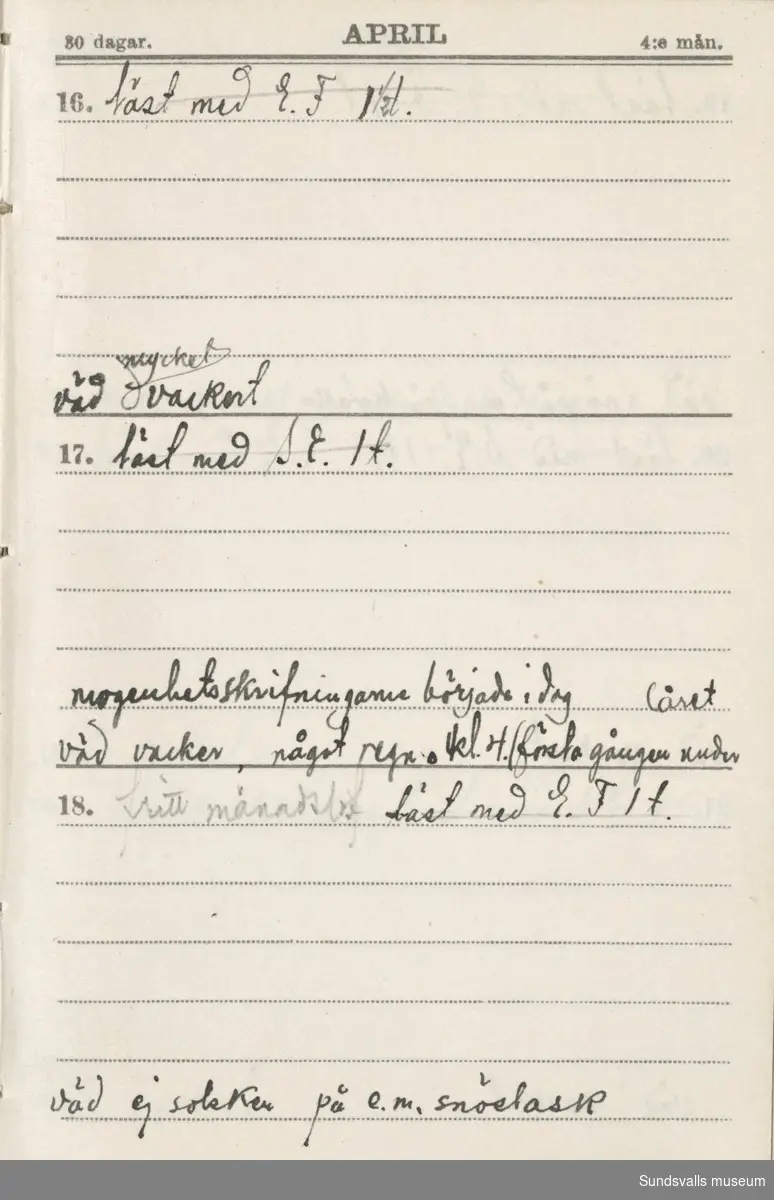 30 dagar. APRIL 4:e mån.
16. läst med E. F 1½t.
mycket
väd vackert
17. läst med S.E. 1t.
mogenhetsskrifningarne började i dag (året
väd vacker, något regn. kl. 4. (första gången under
18. fritt månadslof läst med E. F 1t.
väd ej solsken på e.m. snöslask
Sundsvalls museum